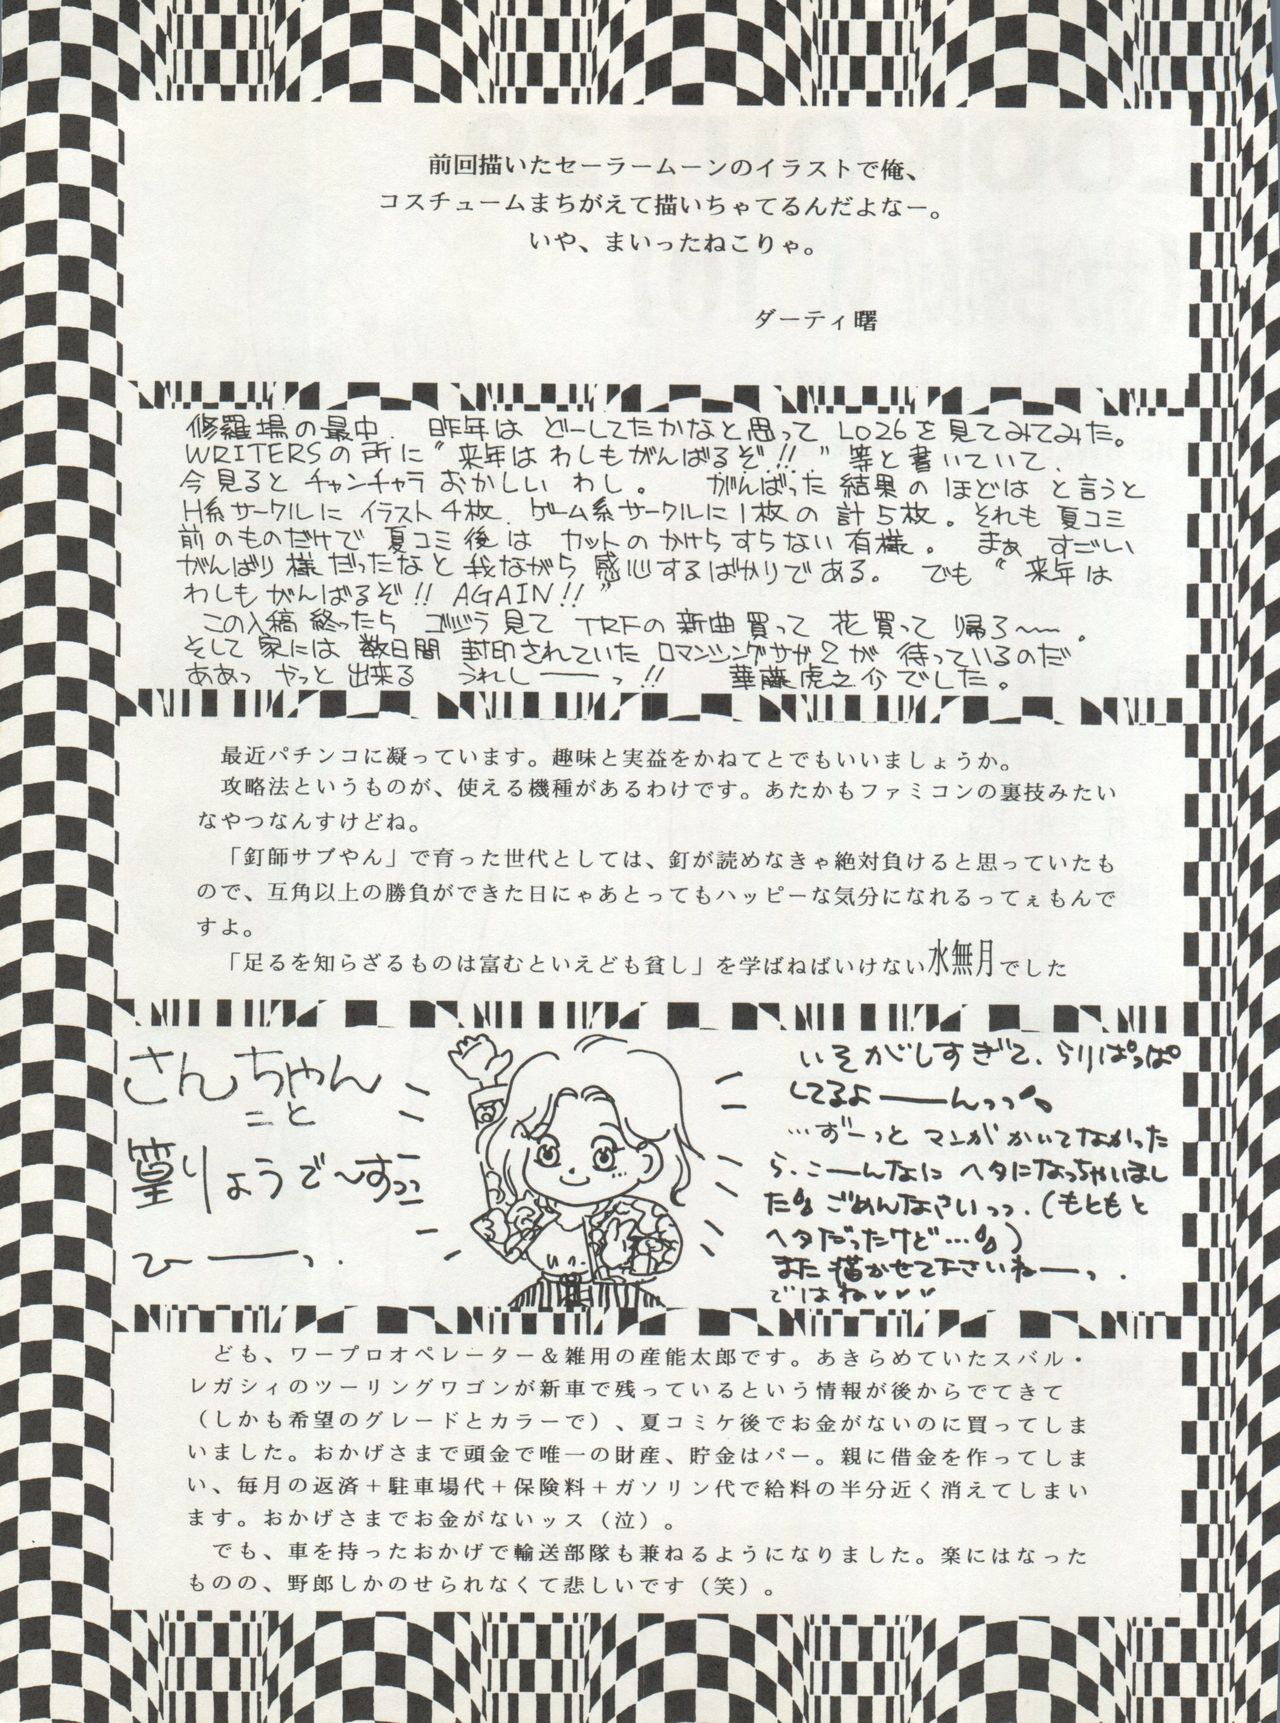 前回描いたセーラームーンのイラストで俺、
コスチュームまちがえて描いちゃてるんだよなー。
いや、まいったねこりゃ。
ダーティ曙
修羅場の最中、昨年は どーしてたかなと思って LO26を見てみてみた。
WRITERSの所に“来年は わしもがんばるぞ!!”等と書いていて、
今見ると チャンチャラ おかしい わし。 がんばった 結果の ほどは と言うと
H系サークルに イラスト4枚、ゲーム系サークルに1枚の 計5枚。それも 夏コミ
前のものだけで 夏コミ後は カットの かけら すらない 有様。 まぁ すごい
がんばり様だったなと 我ながら 感心するばかりである。 でも“来年は
わしもがんばるぞ!! AGAIN!!”
この入稿 終ったら ゴジラ見て TRFの 新曲買って 花買って 帰ろ〜〜。
そして 家には 数日間 封印されていた ロマンシングサガ2が 待っているのだ
ああっ やっと 出来る うれしーーっ!! 華藤虎之介でした。
最近パチンコに凝っています。趣味と実益をかねてとでもいいましょうか。
攻略法というものが、使える機種があるわけです。あたかもファミコンの裏技みたい
なやつなんすけどね。
「釘師サブやん」で育った世代としては、釘が読めなきゃ絶対負けると思っていたも
ので、互角以上の勝負ができた日にゃあとってもハッピーな気分になれるってぇもんで
すよ。
「足るを知らざるものは富むといえども貧し」を学ばねばいけない水無月でした
さんちゃん
こと
篁りょうで〜すっっ
ひーーっ.
いそがしすぎて、らりぱっぱ
してるよーーんっっ
…ずーっと マンガ かいてなかった
ら、こーんなに ヘタになっちゃいまし
た ごめんなさいっっ.(もともと
ヘタだったけど…)
また 描かせて下さいねーーっ.
ではね♥♥♥
ども、ワープロオペレーター＆雑用の産能太郎です。あきらめていたスバル・
レガシィのツーリングワゴンが新車で残っているという情報が後からでてきて
（しかも希望のグレードとカラーで）、夏コミケ後でお金がないのに買ってしま
いました。おかげさまで頭金で唯一の財産、貯金はパー。親に借金を作ってしま
い、毎月の返済＋駐車場代＋保険料＋ガソリン代で給料の半分近く消えてしまい
ます。おかげさまでお金がないッス（泣）。
でも、車を持ったおかげで輸送部隊も兼ねるようになりました。楽にはなった
ものの、野郎しかのせられなくて悲しいです（笑）。